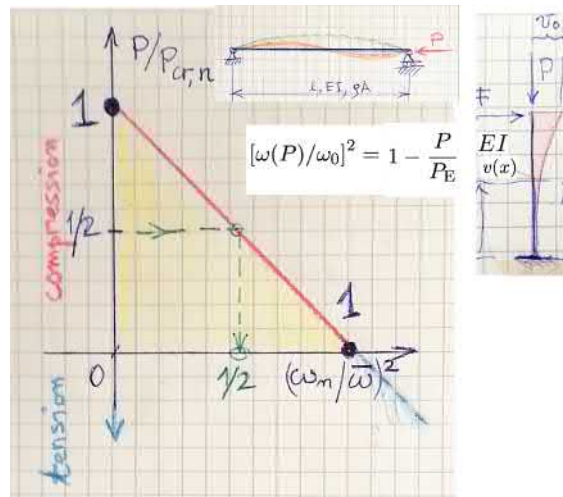 P/P_cr,n
1
L, EI, ρA
P
[ω(P)/ω₀]² = 1 − P/P_E
1/2
compression
1
0
1/2
(ω_n/ω̅)²
tension
v₀
P
F
EI
v(x)